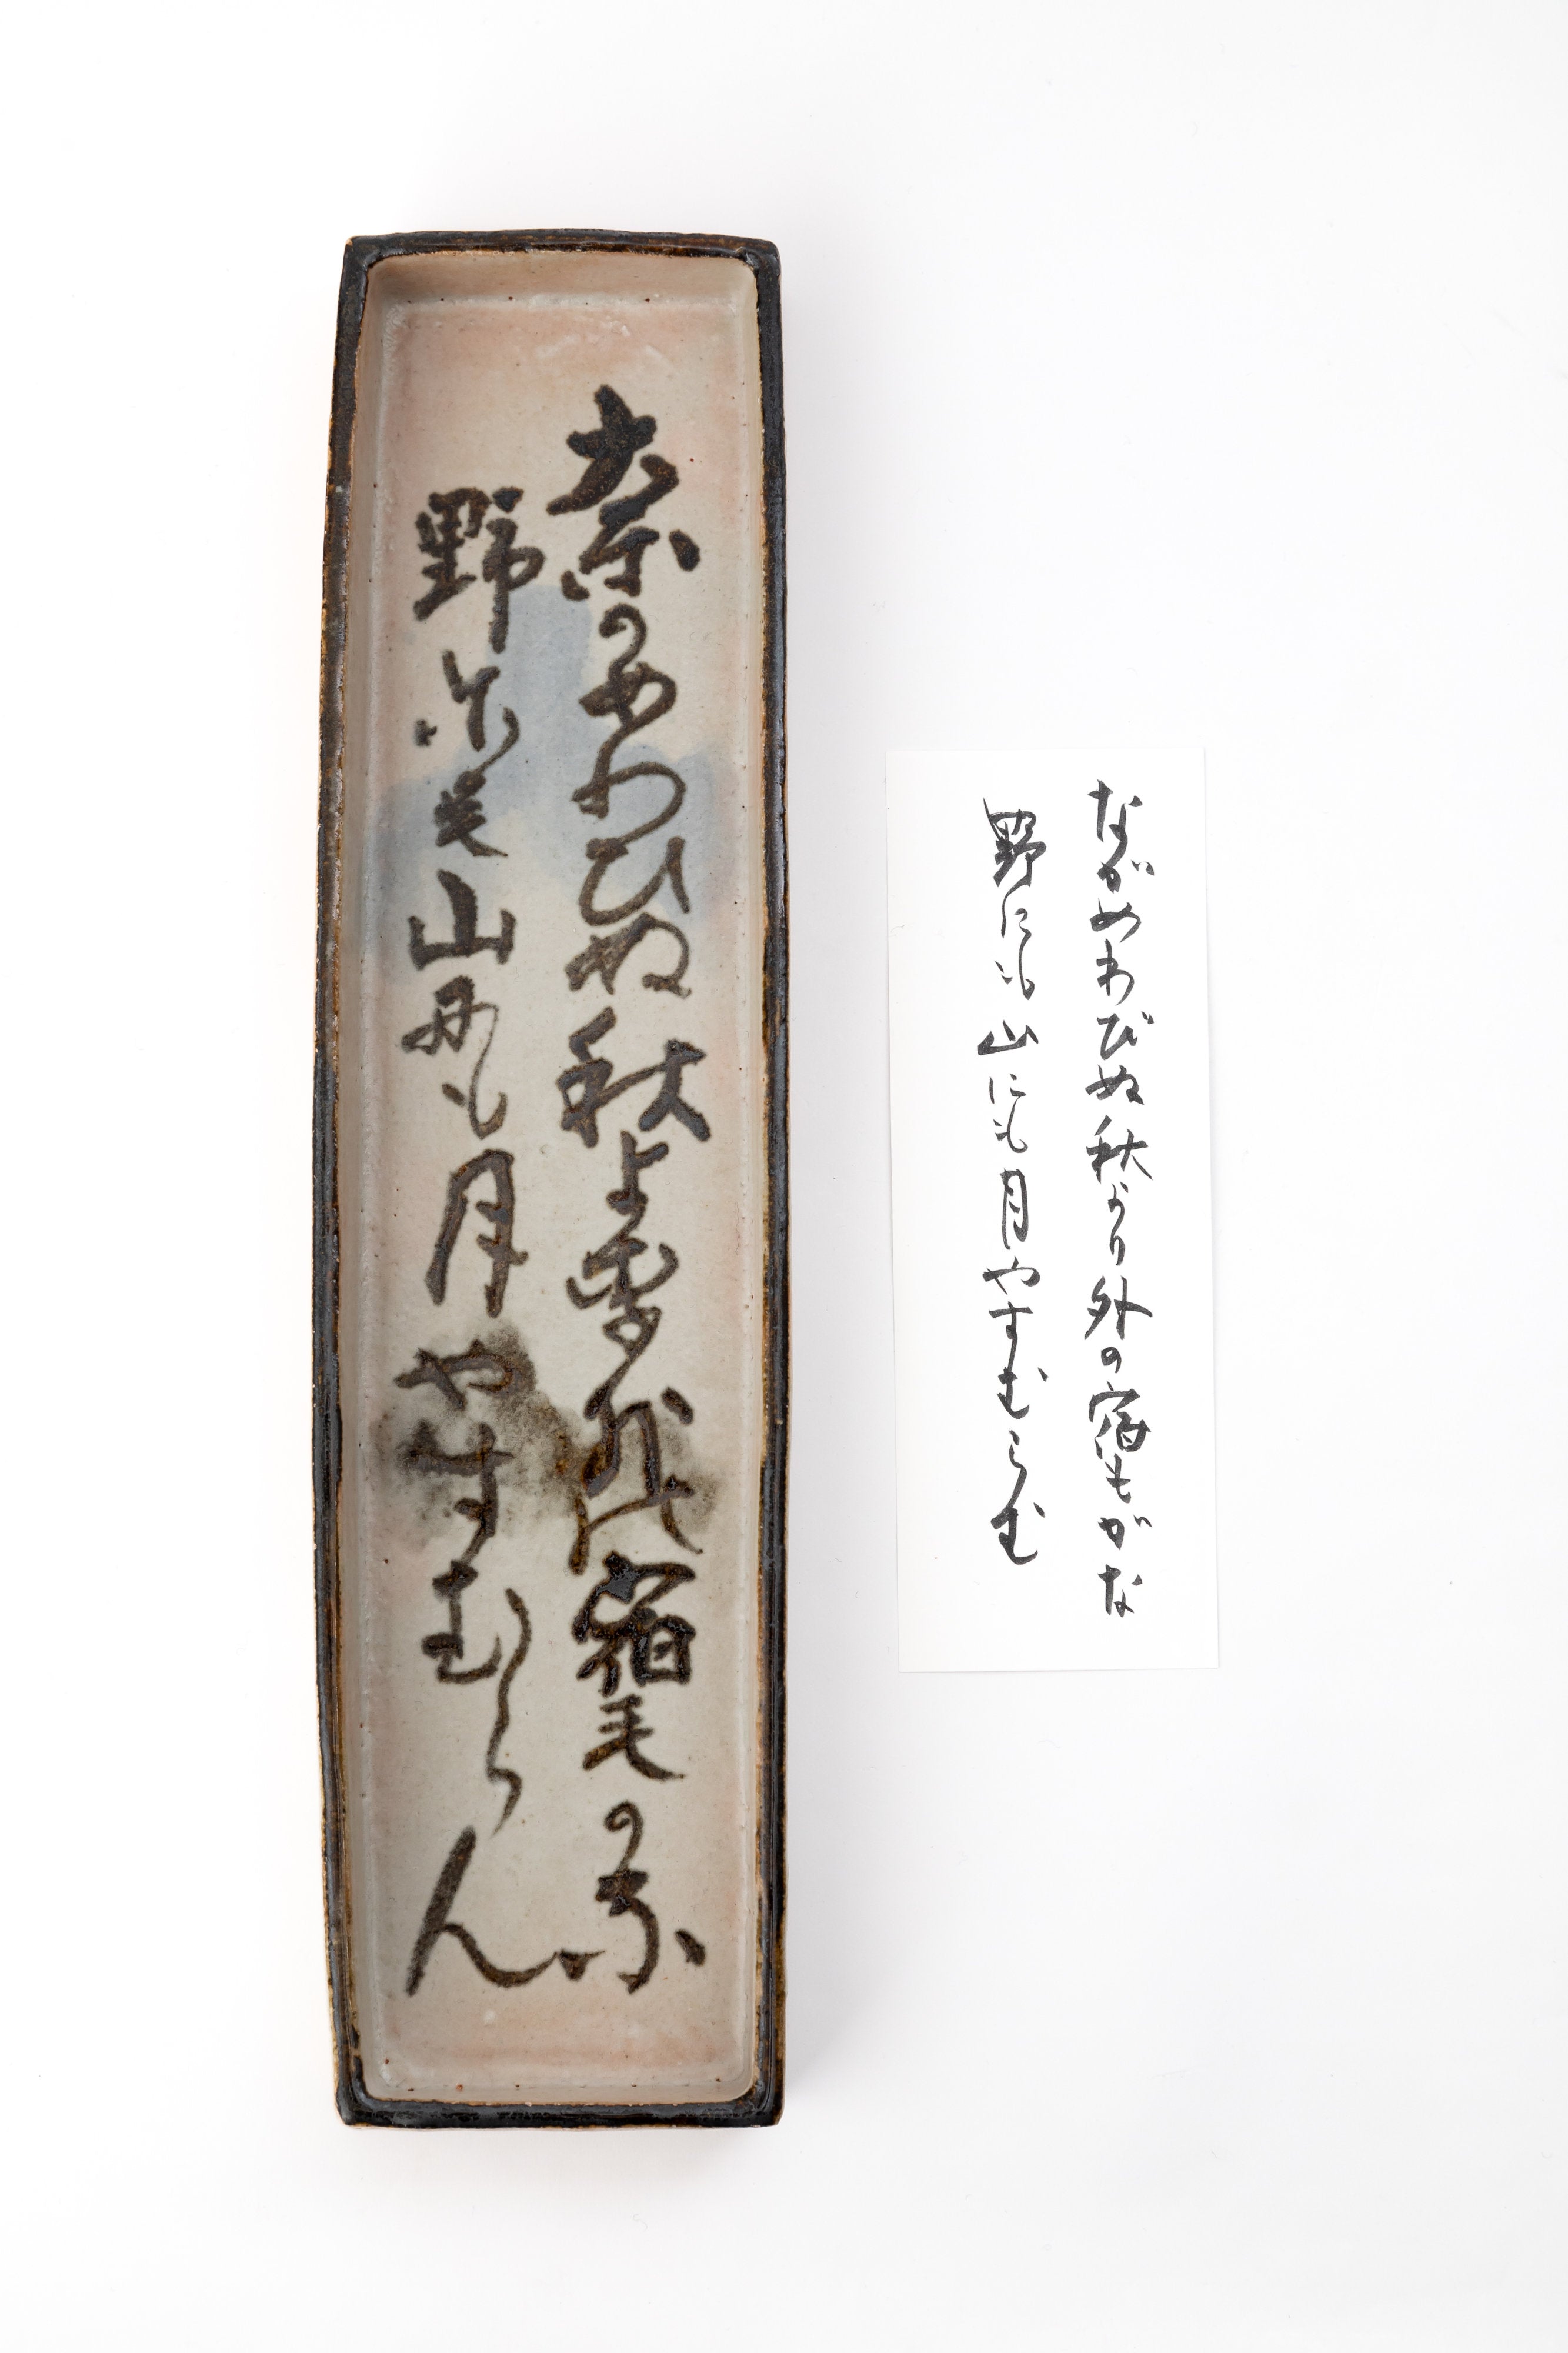 奈かめわひぬ秋より外の宿毛かな
野尓毛山尓も月やすむらん
ながめわびぬ秋より外の宿もがな
野にも山にも月やすむらむ